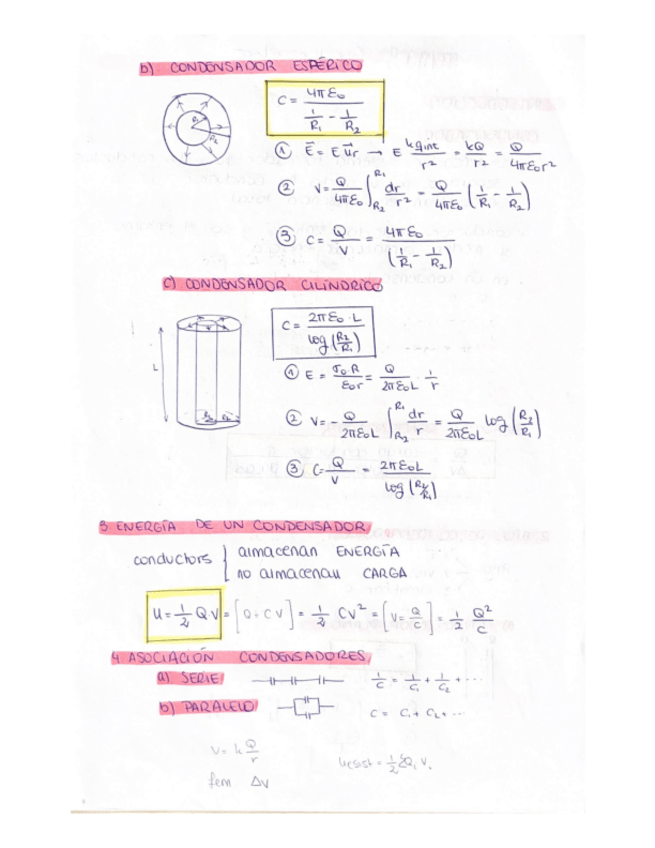 b) CONDENSADOR ESFÉRICO
C = 4πε₀ / (1/R₁ - 1/R₂)
R₁
R₂
① E⃗ = E u⃗r → E kqint/r² = kQ/r² = Q/4πε₀r²
② V = Q/4πε₀ ∫_R₂^R₁ dr/r² = Q/4πε₀ (1/R₁ - 1/R₂)
③ C = Q/V = 4πε₀ / (1/R₁ - 1/R₂)
c) CONDENSADOR CILÍNDRICO
L
C = 2πε₀·L / log(R₂/R₁)
① E = σ₀R/ε₀r = Q/2πε₀L · 1/r
② V = - Q/2πε₀L ∫_R₂^R₁ dr/r = Q/2πε₀L log(R₂/R₁)
③ C = Q/V = 2πε₀L / log(R₂/R₁)
3 ENERGÍA DE UN CONDENSADOR
conductors { almacenan ENERGÍA
no almacenan CARGA
U = 1/2 QV = [Q = CV] = 1/2 CV² = [V = Q/C] = 1/2 Q²/C
4. ASOCIACIÓN CONDENSADORES
a) SERIE 1/C = 1/C₁ + 1/C₂ + ...
b) PARALELO C = C₁ + C₂ + ...
V = k Q/r
fem ΔV